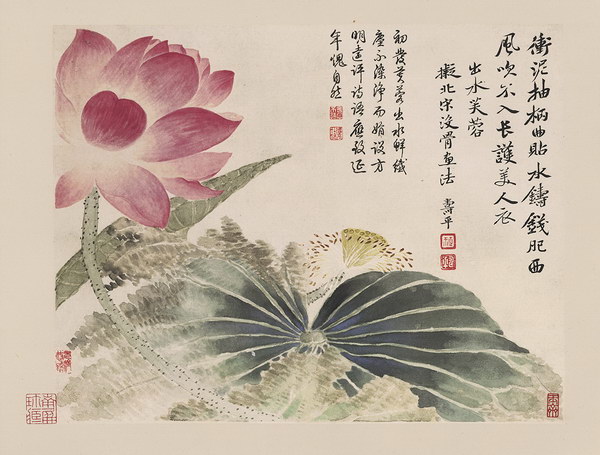 衝泥抽柄曲貼水鑄錢肥西
風吹不入長護美人衣
出水芙蓉
擬北宋沒骨畫法
壽平
初發芙蓉出水鮮纖
塵不染淨而娟設方
明遠評詩語應致延
年愧自然